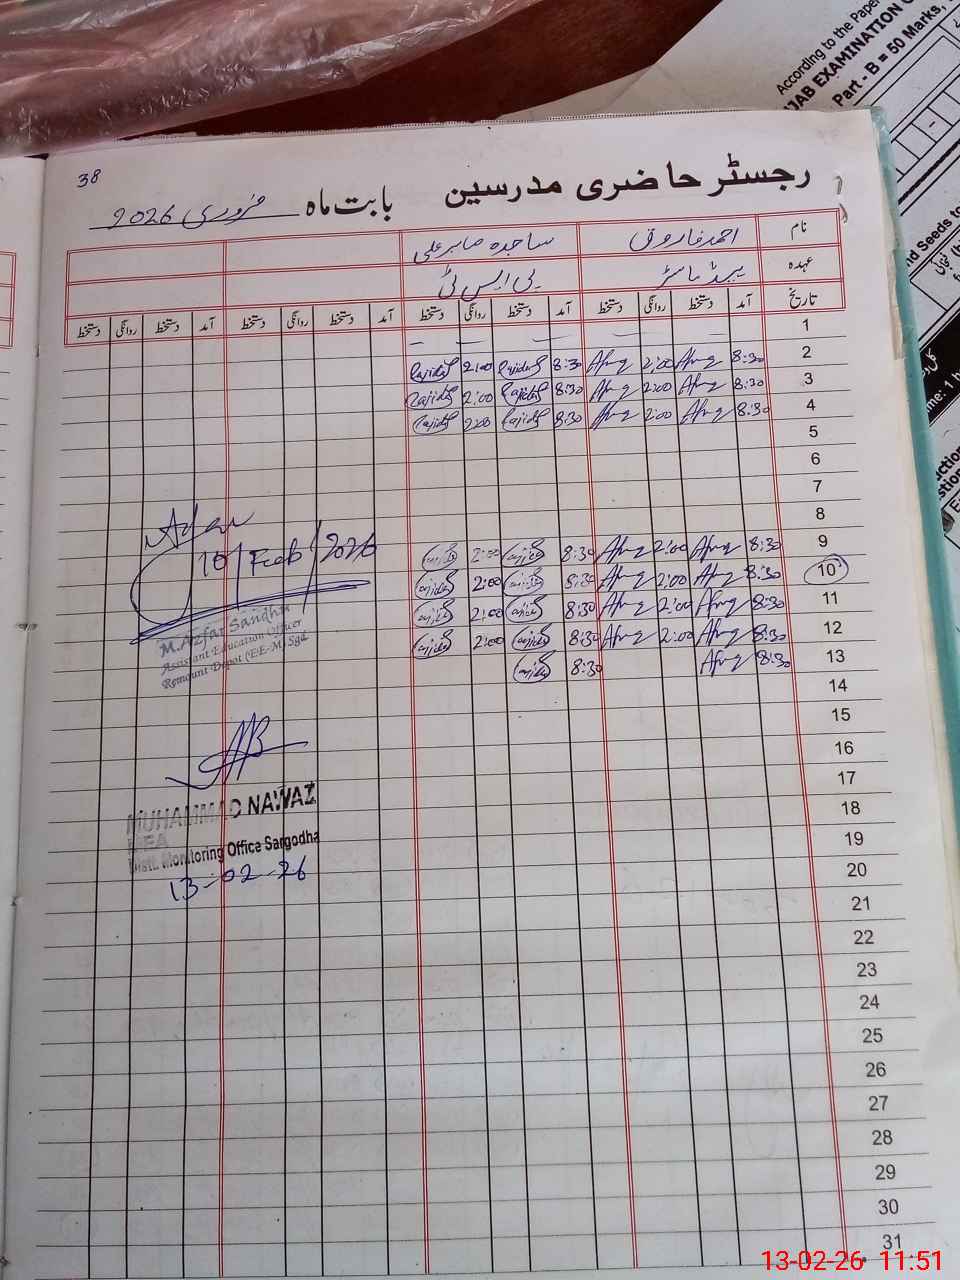 According to the Paper
JAB EXAMINATION C
Part - B = 50 Marks,
nd Seeds to
me: 1 h
38
رجسٹر حاضری مدرسین بابت ماہ فروری 2026
نام احمد فاروق ساجدہ صابر علی
عہدہ ہیڈ ماسٹر پی ایس ٹی
تاریخ آمد دستخط روانگی دستخط آمد دستخط روانگی دستخط آمد دستخط روانگی دستخط آمد دستخط روانگی دستخط
1
2 8:30 2:00 8:30 2:00
3 8:30 2:00 8:30 2:00
4 8:30 2:00 8:30 2:00
5
6
7
8
9 8:30 2:00 8:30 2:00
10 8:30 2:00 8:30 2:00
11 8:30 2:00 8:30 2:00
12 8:30 2:00 8:30 2:00
13 8:30 8:30
14
15
16
17
18
19
20
21
22
23
24
25
26
27
28
29
30
31
10/Feb/2026
M. Azfar Sandhu
Assistant Education Officer
Remount Depot (E.E-M) Sgd
MUHAMMAD NAWAZ
MEA
Distt. Monitoring Office Sargodha
13-02-26
13-02-26 11:51